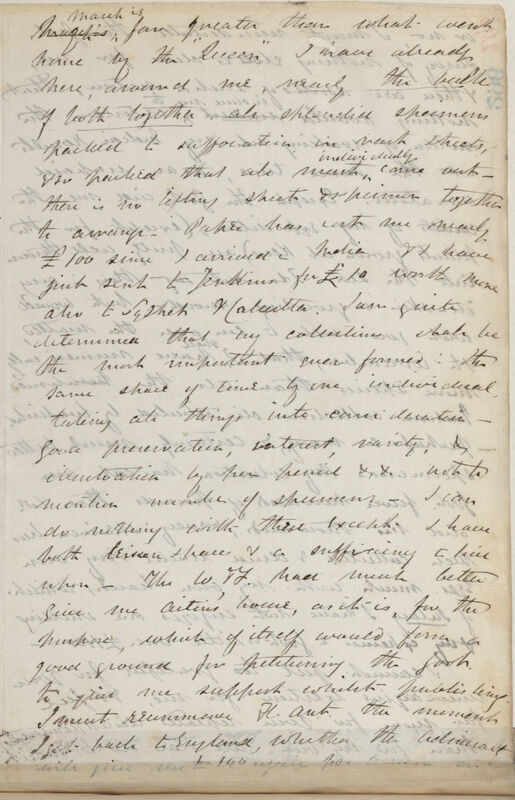 March is
far greater than what went
home by the "Queen" I have already
here, around me, nearly the bulk
of both together all splendid specimens
packed to suffocation in vast sheets,
& so packed that all must individually come out —
there is no lifting sheet & specimen together
to arrange. Paper has cost me nearly
£100 since I arrived in India & I have
just sent to Jenkins for £10 worth more
also to Sylhet & Calcutta. I am quite
determined that my collections shall be
the most important ever formed in the
same space of time by one individual,
taking all things into consideration —
Good preservation, interest, variety, &
illustration by pen pencil &c &c not to
mention number of specimens — I can
do nothing with these except I have
both leisure space & a sufficiency to live
upon — The W. & F. had much better
give me Aiton's house, as it is, for the
purpose, which of itself would form a
good ground for petitioning the Govt
to give me support whilst publishing.
I must recommence Fl. Ant. the moment
I get back to England, whether the Admiralty
will give me